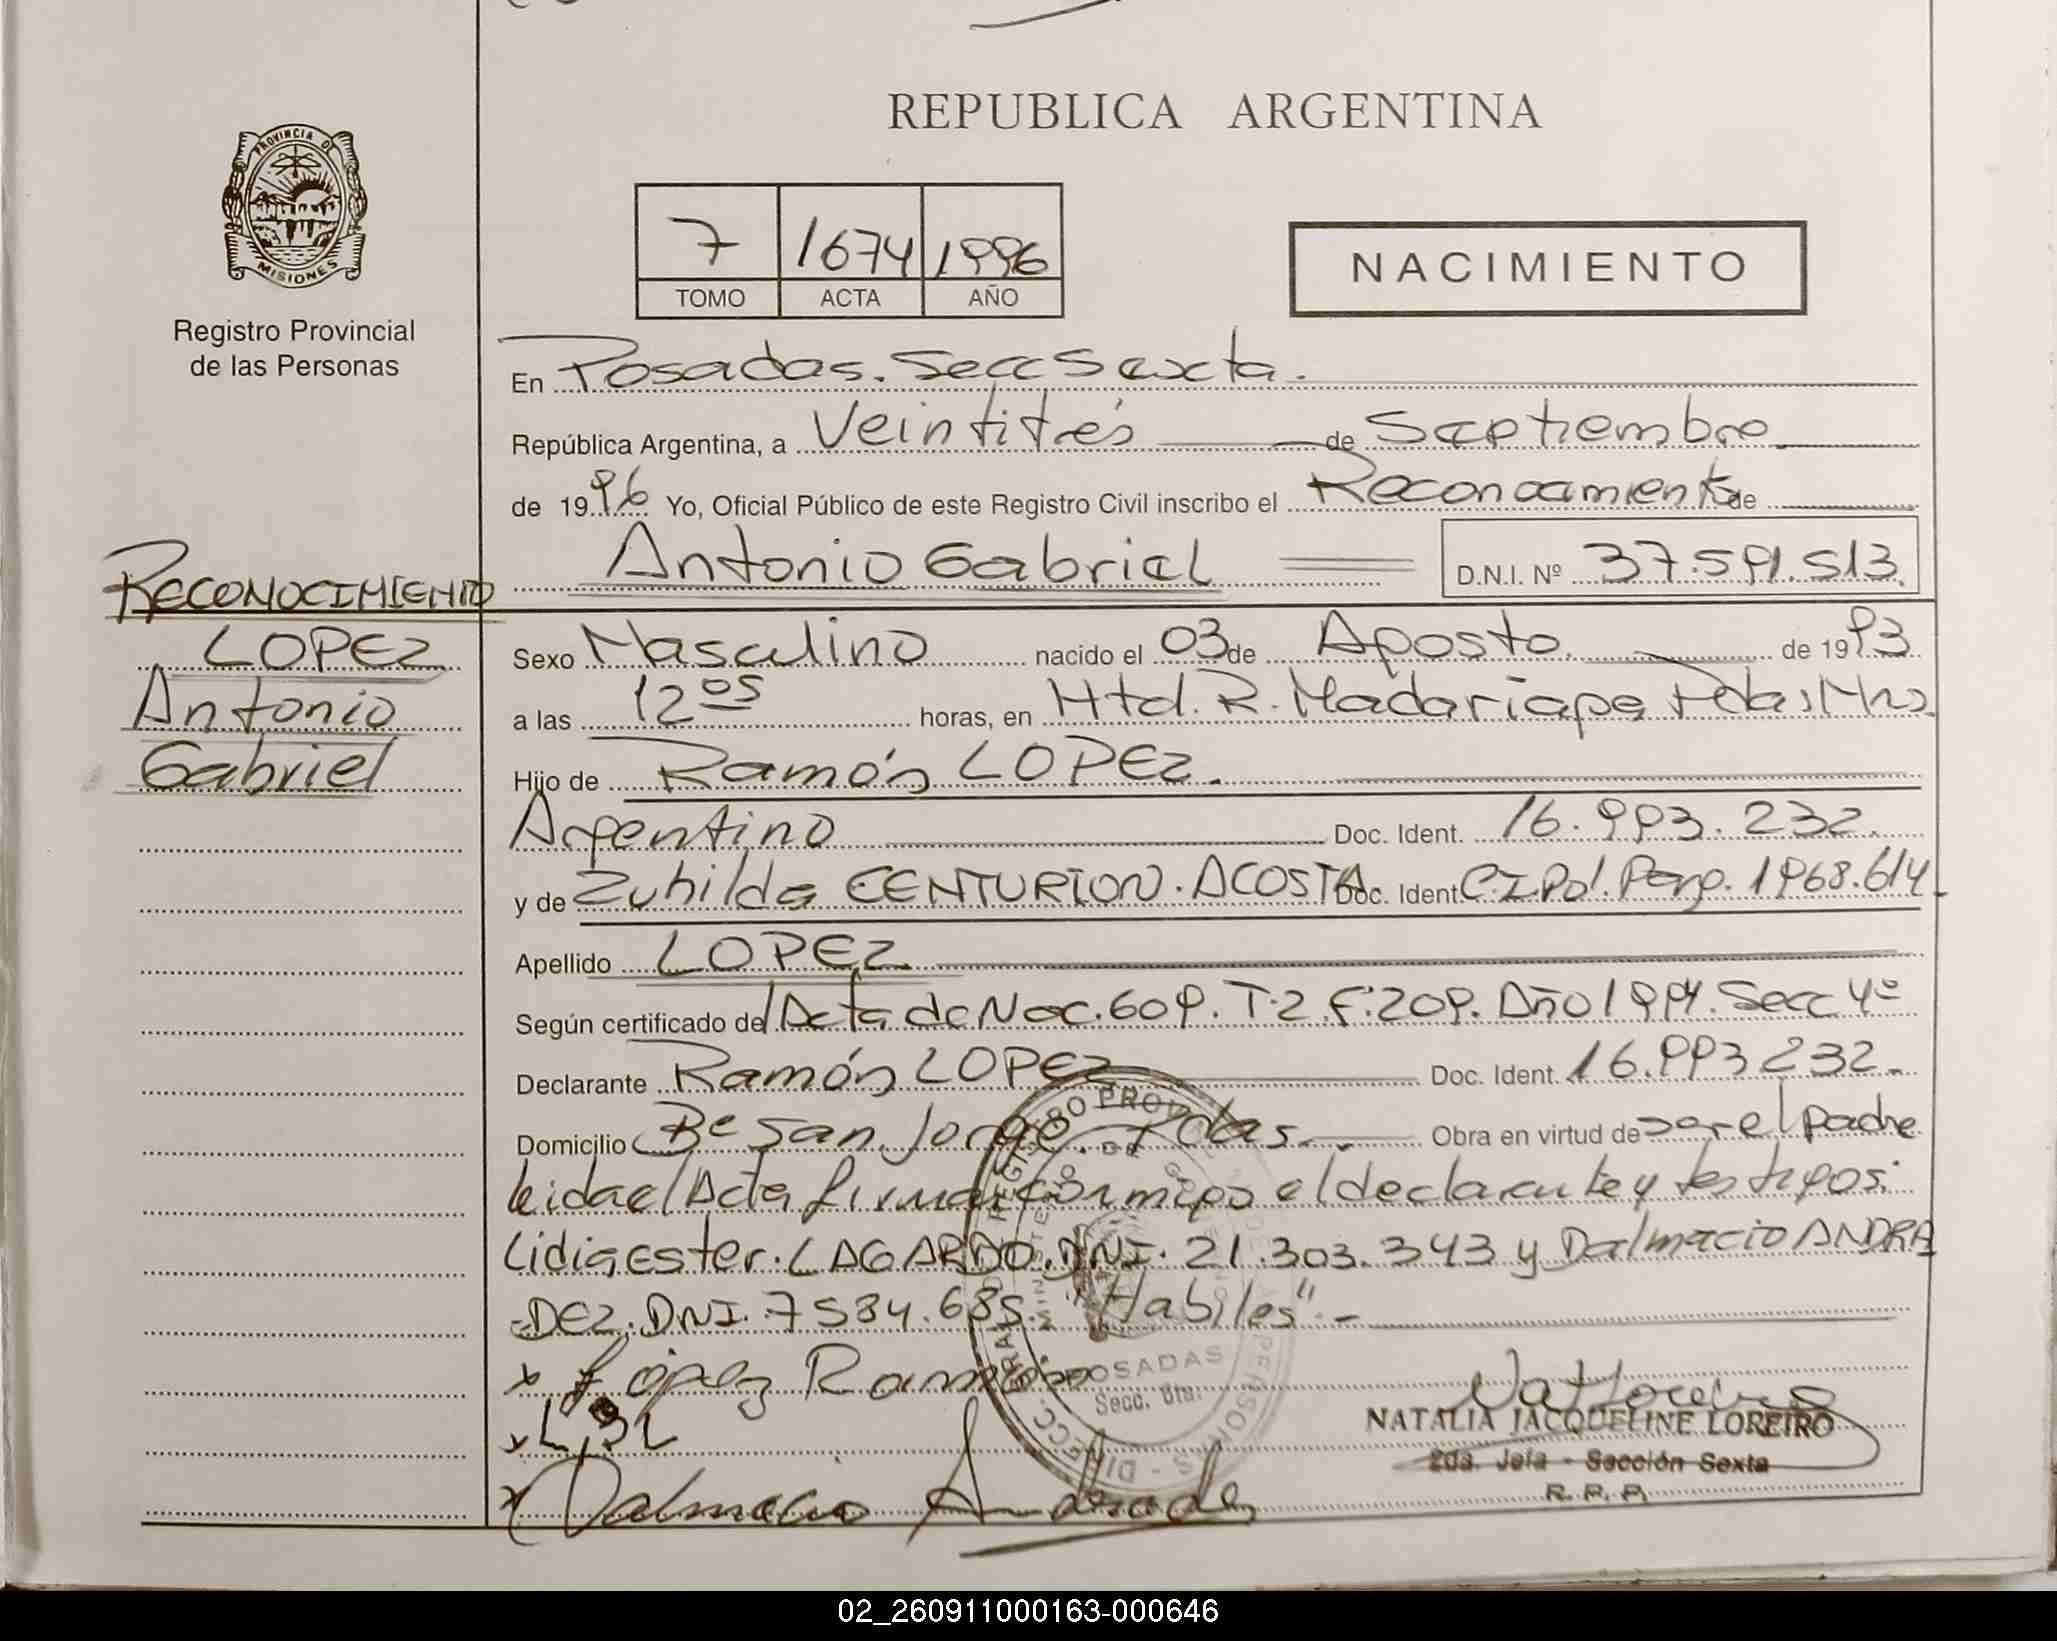 REPUBLICA ARGENTINA
PROVINCIA DE
MISIONES
Registro Provincial
de las Personas
7 1674 1996
TOMO ACTA AÑO
NACIMIENTO
En Posadas. Secc Sexta.
República Argentina, a Veintitrés de Septiembre
de 1996 Yo, Oficial Público de este Registro Civil inscribo el Reconocimiento de
Antonio Gabriel D.N.I. Nº 37.591.513.
RECONOCIMIENTO
LOPEZ
Antonio
Gabriel
Sexo Masculino nacido el 03 de Agosto. de 1993
a las 12 05 horas, en Htal. R. Madariaga Pdas Mnes
Hijo de Ramón LOPEZ.
Argentino Doc. Ident. 16.993.232.
y de Zuhilda CENTURION. ACOSTA Doc. Ident C.I Pol. Parg. 1968.614.
Apellido LOPEZ
Según certificado del Acta de Nac. 609. T.2. F.209. Año 1994. Secc 4º
Declarante Ramón LOPEZ Doc. Ident. 16.993 232.
Domicilio Bº San Jorge. Pdas. Obra en virtud de ser el padre
leida el Acta firman conmigo el declarante y testigos:
Lidia Ester. LAGARDO. DNI. 21.303.343 y Dalmacio ANDRA
-DEZ. DNI. 7584.685. "Habiles".-
x López Ramón
x
x Dalmacio Andrade
POSADAS
Secc. 6ta.
NATALIA JACQUELINE LOREIRO
2da. Jefa - Sección Sexta
R. P. P.
02_260911000163-000646